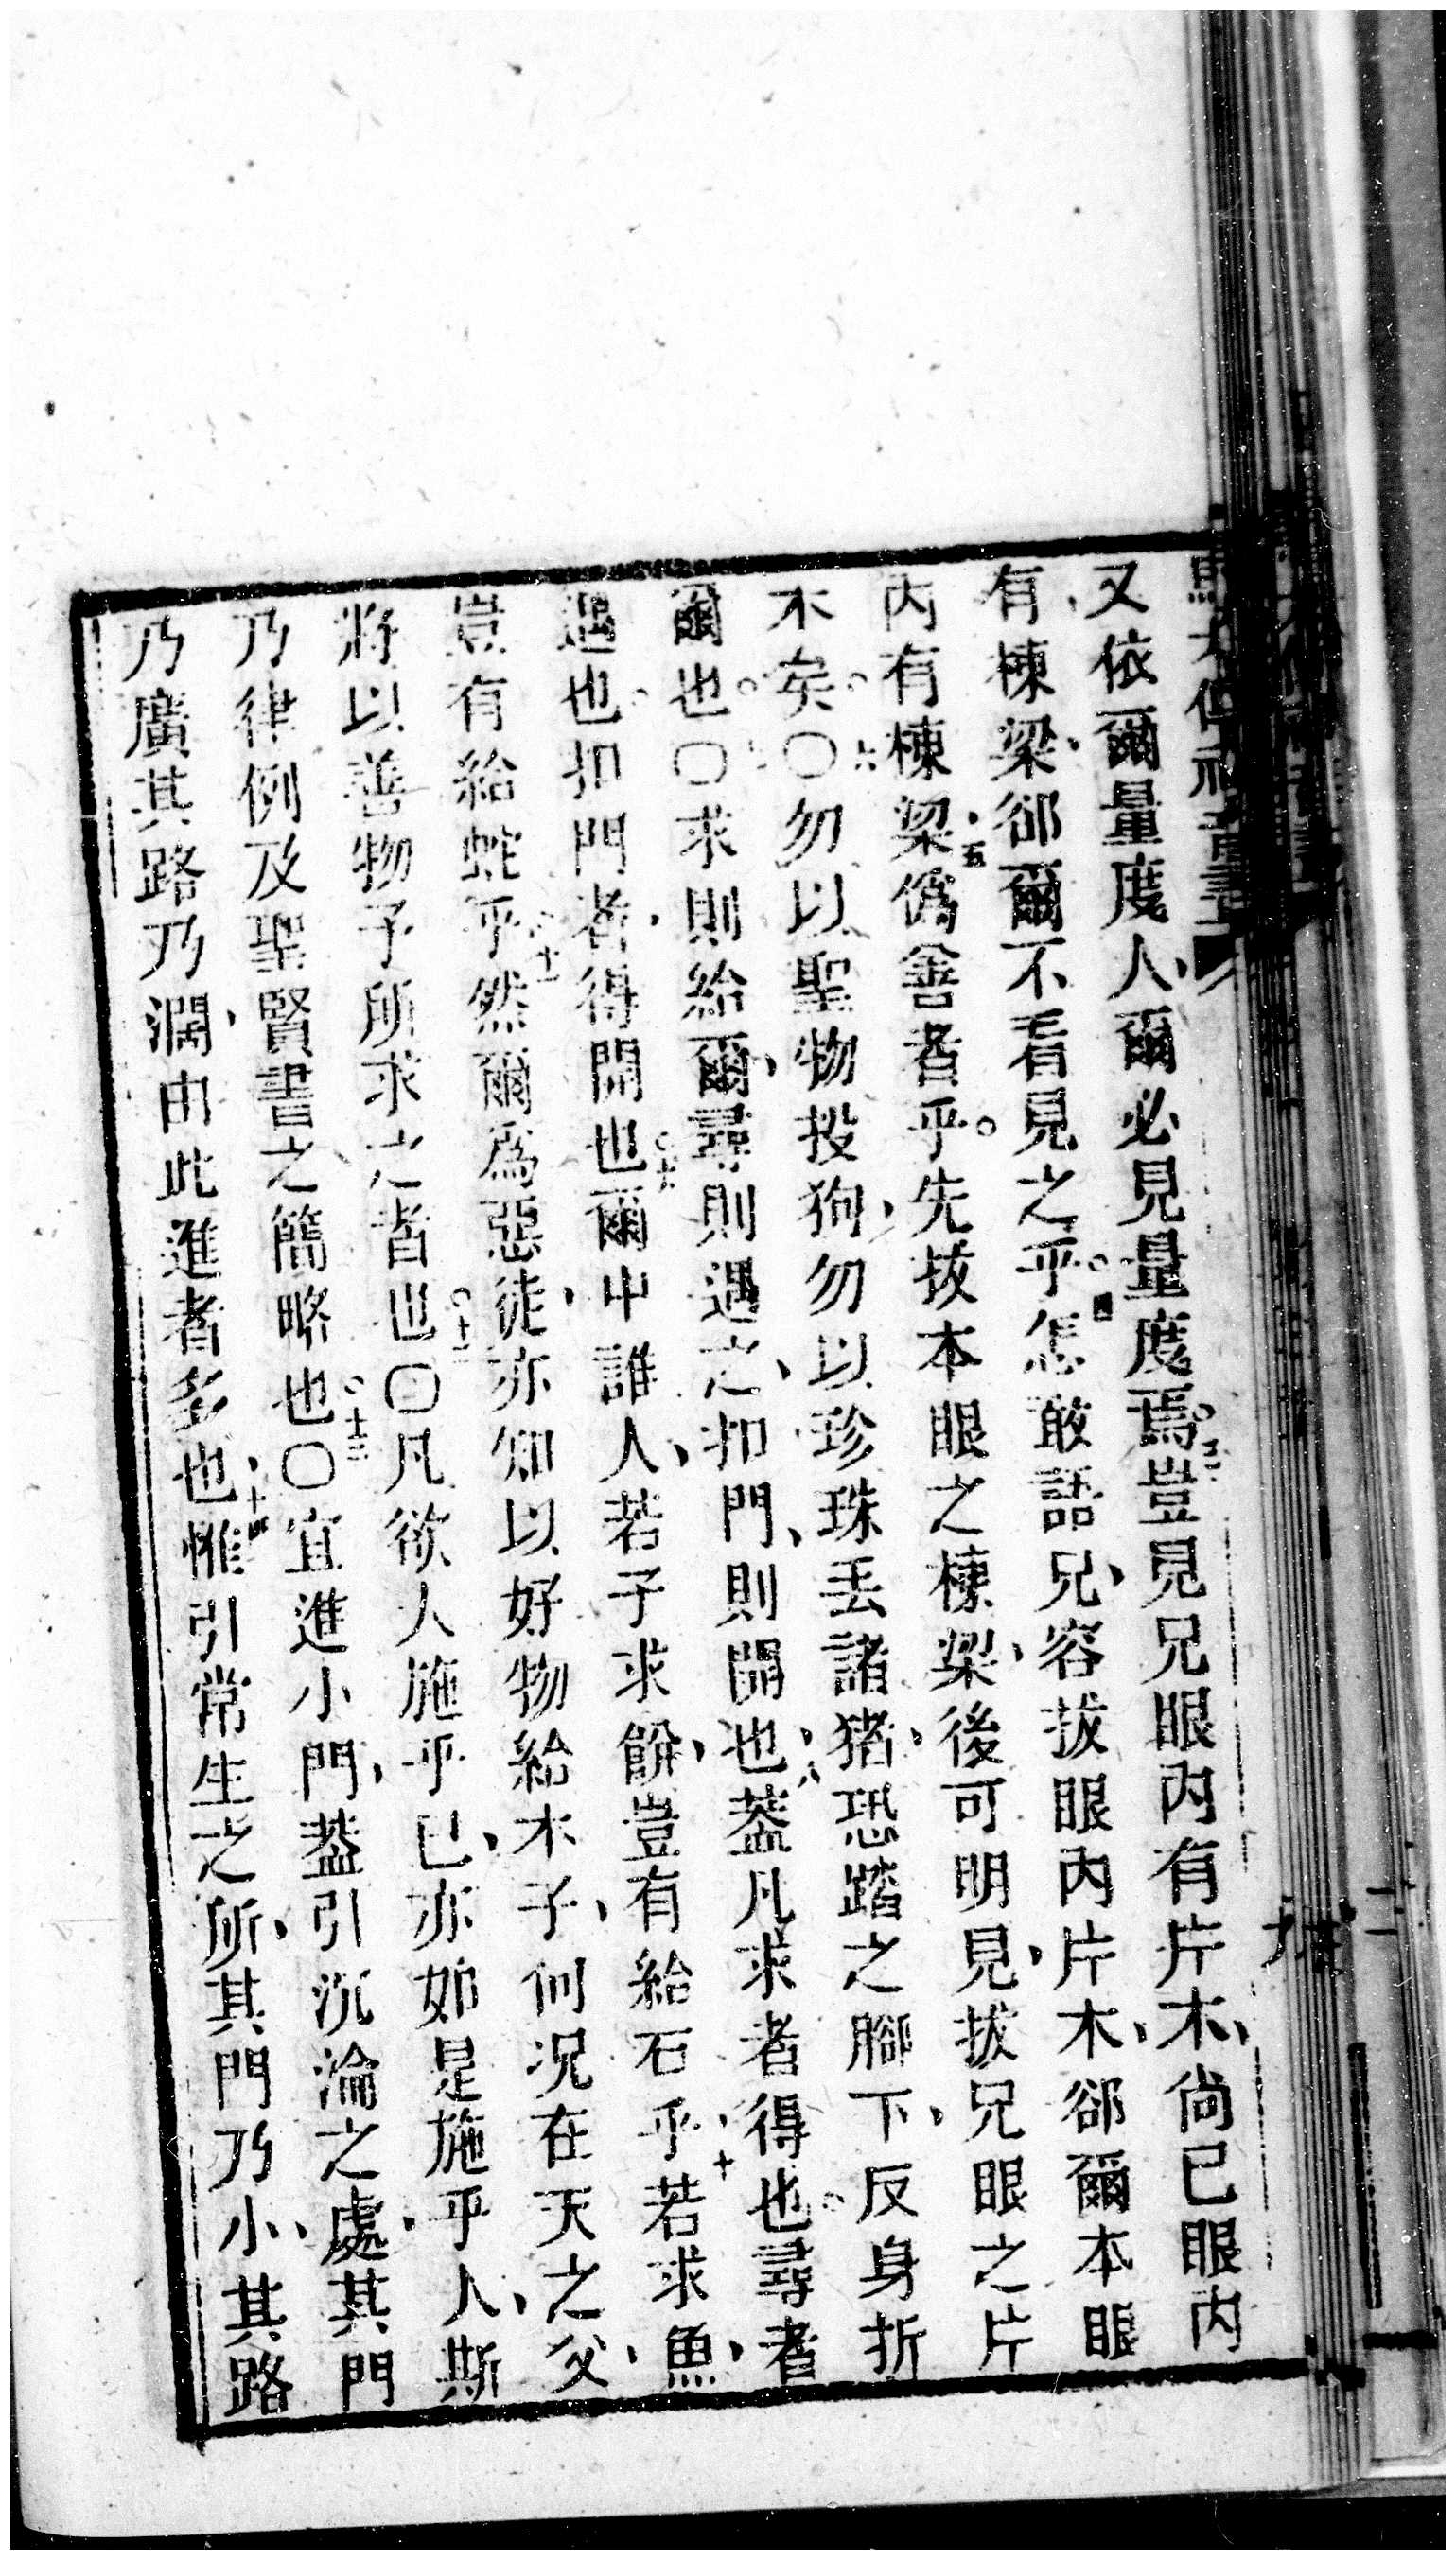 又依爾量度人、爾必見量度焉。三豈見兄眼內有片木、尚已眼內
有棟梁、郤爾不看見之乎。四怎敢語兄、容拔眼內片木、郤爾本眼
內有棟梁、五僞善者乎。先拔本眼之棟梁、後可明見、拔兄眼之片
木矣。○六勿以聖物投狗、勿以珍珠丟諸猪、恐踏之腳下、反身折
爾也。○求則給爾、尋則遇之、扣門、則開也、八葢凡求者得也。尋者
遇也。扣門者、得開也。爾中誰人、若子求餅、豈有給石乎、十若求魚、
豈有給蛇乎。十一然爾爲惡徒、亦知以好物給本子、何况在天之父、
將以善物予所求之者也。十二○凡欲人施乎已、亦如是施乎人、斯
乃律例及聖賢書之簡略也。十三○宜進小門、葢引沉淪之處、其門
乃廣其路乃濶、由此進者多也、十四惟引常生之所、其門乃小、其路